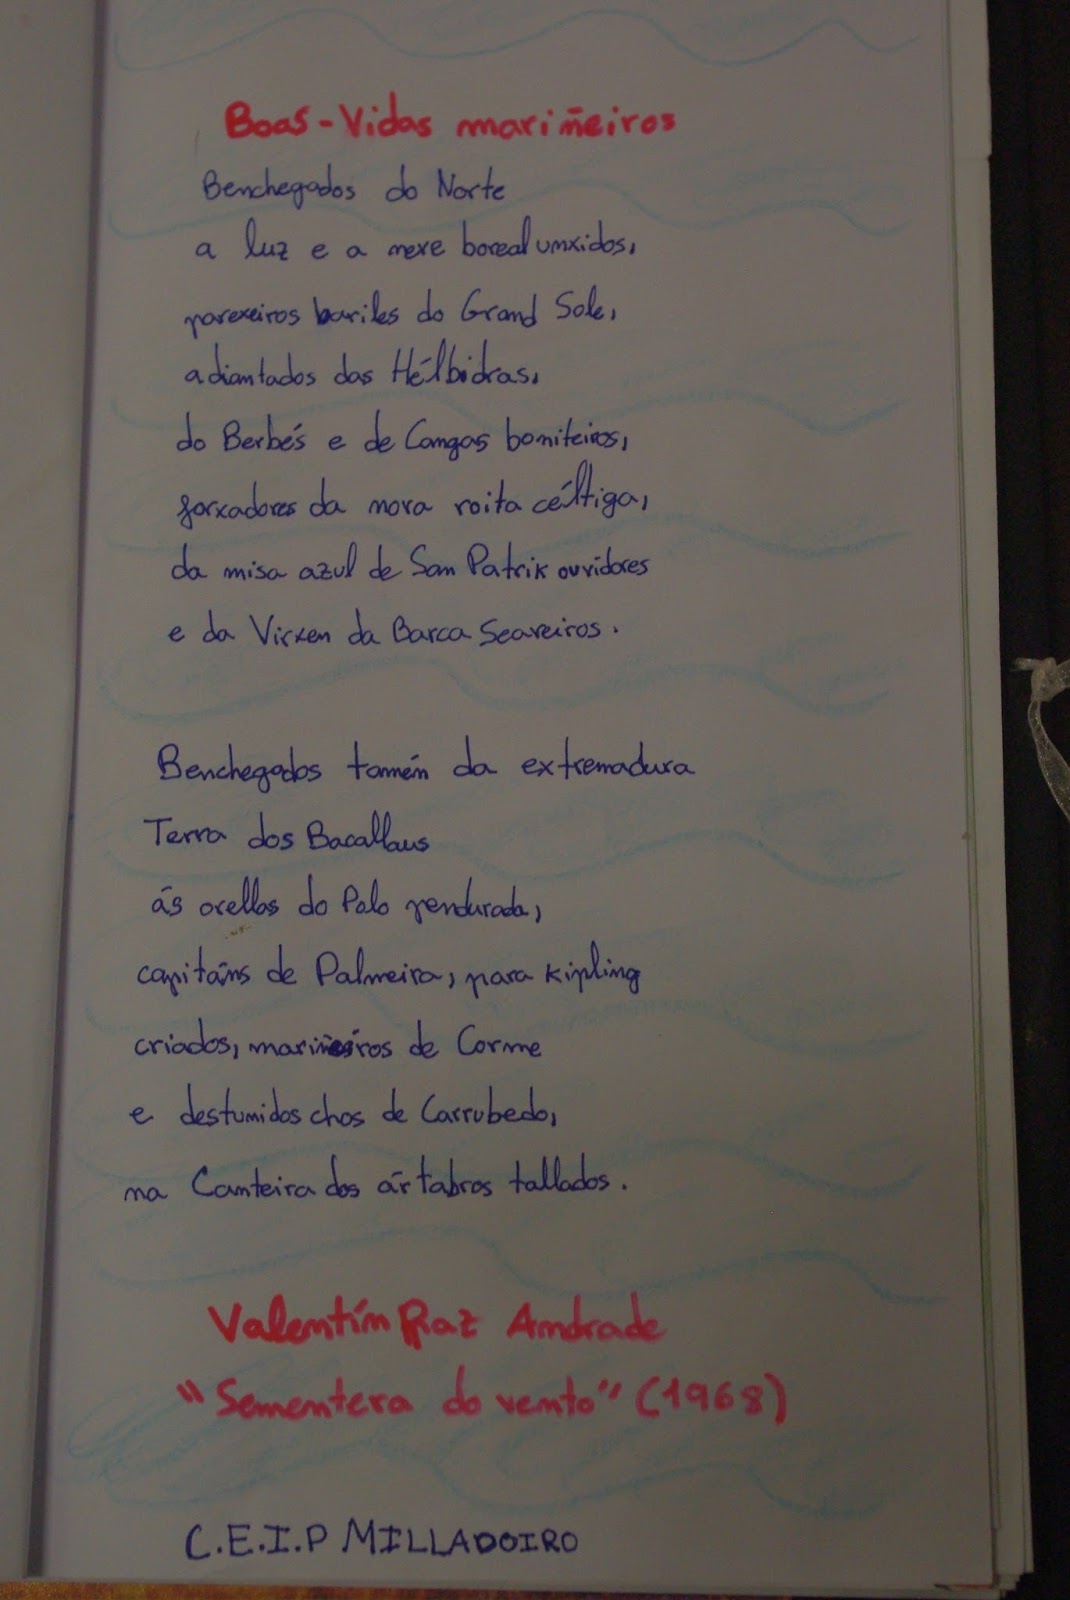 Boas-Vidas mariñeiros
Benchegados do Norte
a luz e a neve boreal umxidos,
parexeiros bariles do Grand Sole,
adiantados das Hélbidras,
do Berbés e de Cangas boniteiros,
forxadores da nova roita céltiga,
da misa azul de San Patrik ouvidores
e da Virxen da Barca Seareiros.
Benchegados tamén da extremadura
Terra dos Bacallaus
ás orellas do Polo pendurada,
capitáns de Palmeira, para Kipling
criados, mariñeiros de Corme
e destumidos chos de Carrubedo,
na Canteira dos ártabros tallados.
Valentín Paz Andrade
"Sementera do vento" (1968)
C.E.I.P MILLADOIRO